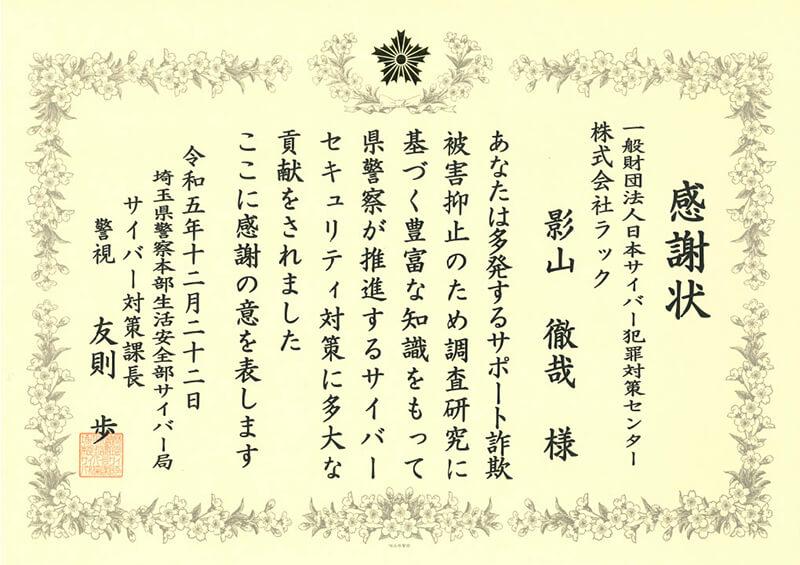 感謝状
一般財団法人日本サイバー犯罪対策センター
株式会社ラック
影山 徹哉 様
あなたは多発するサポート詐欺
被害抑止のため調査研究に
基づく豊富な知識をもって
県警察が推進するサイバー
セキュリティ対策に多大な
貢献をされました
ここに感謝の意を表します
令和五年十二月二十二日
埼玉県警察本部生活安全部サイバー局
サイバー対策課長
警視 友則 歩